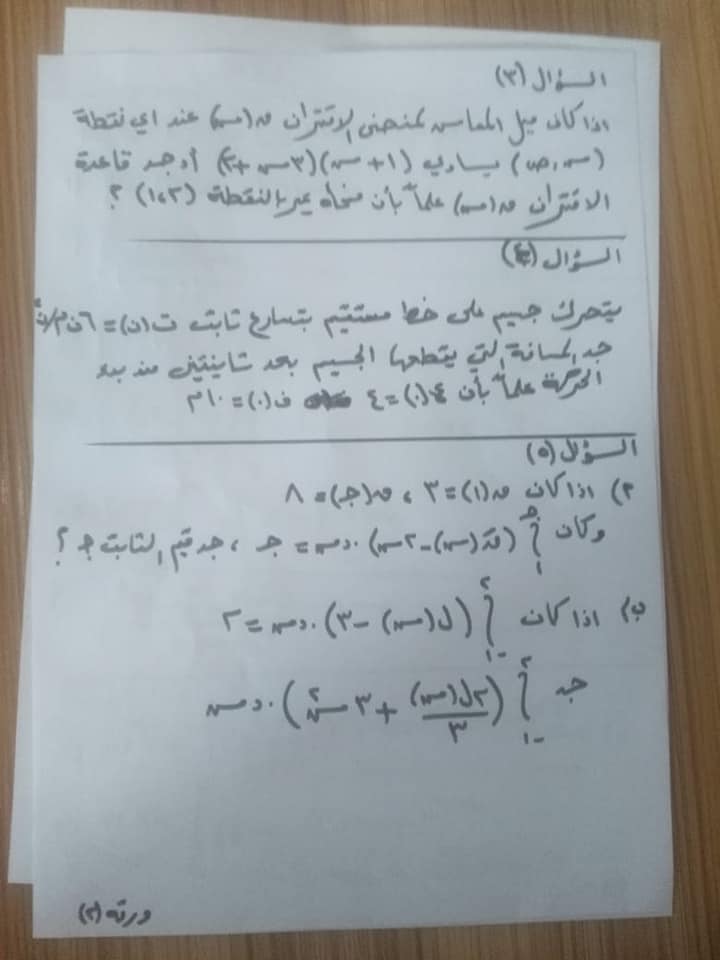 السؤال (٣)
اذا كان ميل المماس لمنحنى الاقتران ق(س) عند اي نقطة
(س،ص) يساوي (١+س)(٣س+٢) أوجد قاعدة
الاقتران ق(س) علماً بأن منحناه يمر بالنقطة (١،٢) ؟
السؤال (٤)
يتحرك جسيم على خط مستقيم بتسارع ثابت ت(ن)=٦ن م/ث٢
جد المسافة التي يقطعها الجسيم بعد ثانيتين من بدء
الحركة علماً بأن ع(٠)=٤ ف(٠)=١٠م
السؤال (٥)
٢) اذا كان ق(١)=٣ ، ق(جـ)=٨
وكان ∫١^جـ (قَ(س)-٢س).دس= جـ ، جد قيم الثابت جـ ؟
ب) اذا كان ∫-١^٢ (ل(س)-٣).دس=٢
جد ∫-١^٢ (٢ل(س)/٣ + ٣س٢).دس
ورقة (٢)